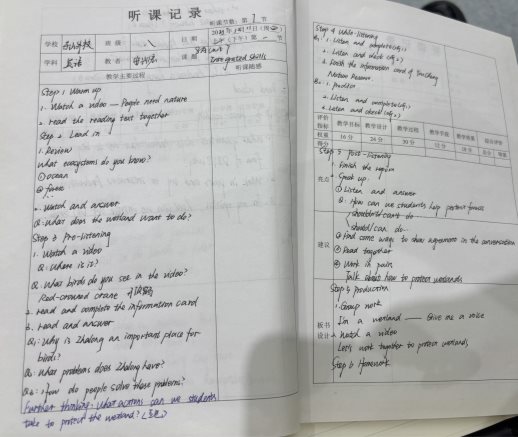 听课记录
听课节数：第 1 节
学校
班级 八
日期
学科 英语
教者
课题
Integrated Skills
教学主要过程
听课随感
Step 1 Warm up
1. Watch a video — People need nature
2. read the reading text together
Step 2 Lead in
1. Review
What ecosystems do you know?
① ocean
②
2. Watch and answer
Q: What does the wetland want to do?
Step 3 Pre-listening
1. Watch a video
Q: Where is it?
Q. What birds do you see in the video?
Red-crowned crane
2. read and complete the information card
3. read and answer
Q1: Why is Zhalong an important place for
birds?
Q2: What problems does Zhalong have?
Q3: How do people solve these problems?
Further thinking: What actions can we students
take to protect the wetland?
Step 4 While-listening
1. Listen and complete
2. Listen and check
3. finish the information card of
Nature Reserve.
1. predict
2. Listen and complete
3. Listen and check
评价指标
教学目标
教学设计
教学过程
教学手段
教学效果
综合评价
权重
16分
24分
30分
12分
18分
得分
Step 5 Post-listening
1. finish the
Speak up.
亮点
① Listen and answer
Q: How can we students help protect
shouldn't/can't do
should/can do
② Find some ways to show agreement in the conversation
建议
③ Read together
④ Work in pairs
Talk about how to protect wetlands
Step 5 Production
1. Group work
I'm a wetland —— Give me a voice
板书设计
2. Watch a video
Let's work together to protect wetlands
Step 6 Homework